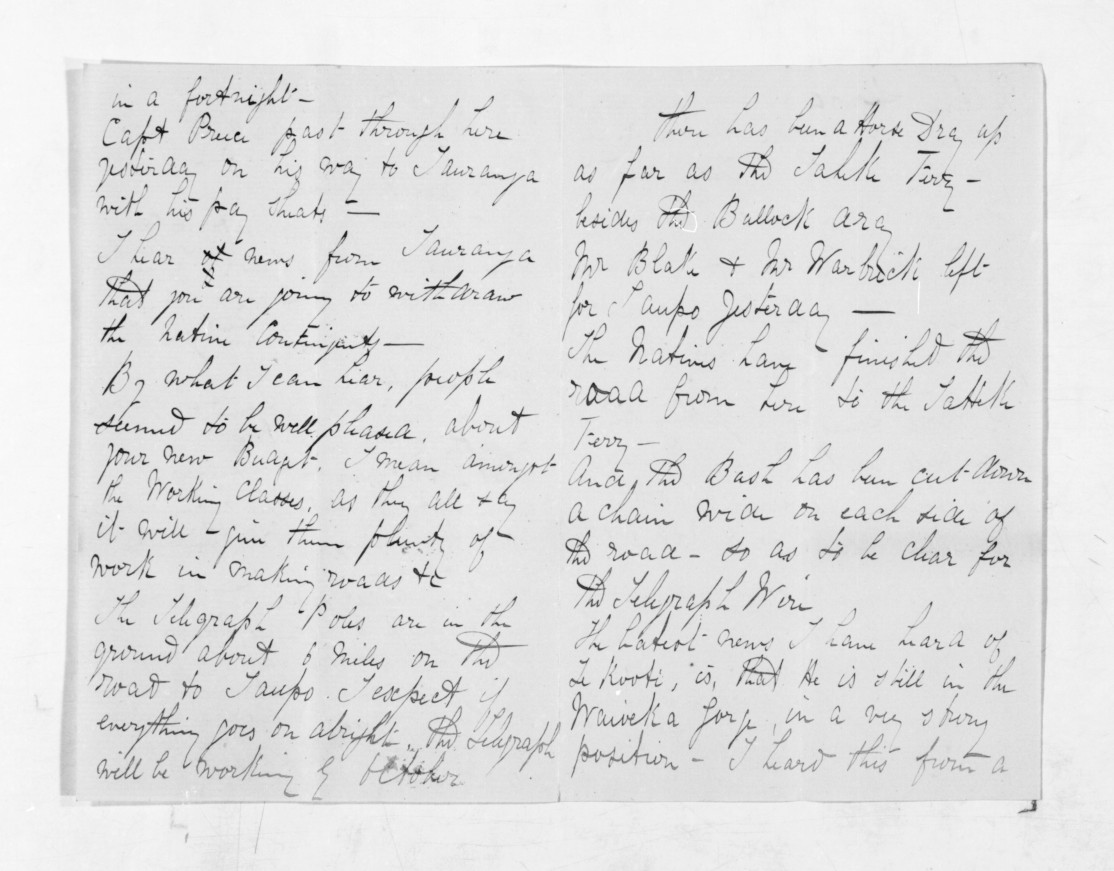 in a fortnight -
Capt Preece past through here
yesterday on his way to Tauranga
with his pay sheats -
I hear news from Tauranga
that you are going to withdraw
the Native Contingents -
By what I can hear, people
seemed to be well pleased, about
your new Budget. I mean amongst
the Working Classes, as they all say
it will - give them plenty of
work in making roads &c
The Telegraph Poles are in the
ground about 6 miles on the
road to Taupo. I expect if
everything goes on alright, the Telegraph
will be working by October
there has been a Horse Dray up
as far as the Tahike Ferry -
besides the Bullock dray
Mr Blake & Mr Warbrick left
for Taupo Yesterday -
The Natives have finished the
road from here to the Ferry -
And the Bush has been cut down
a chain wide on each side of
the road - so as to be clear for
the Telegraph Wire
The Latest news I have heard of
Te Kooti, is, that He is still in the
Waioeka Gorge, in a very strong
position - I heard this from a